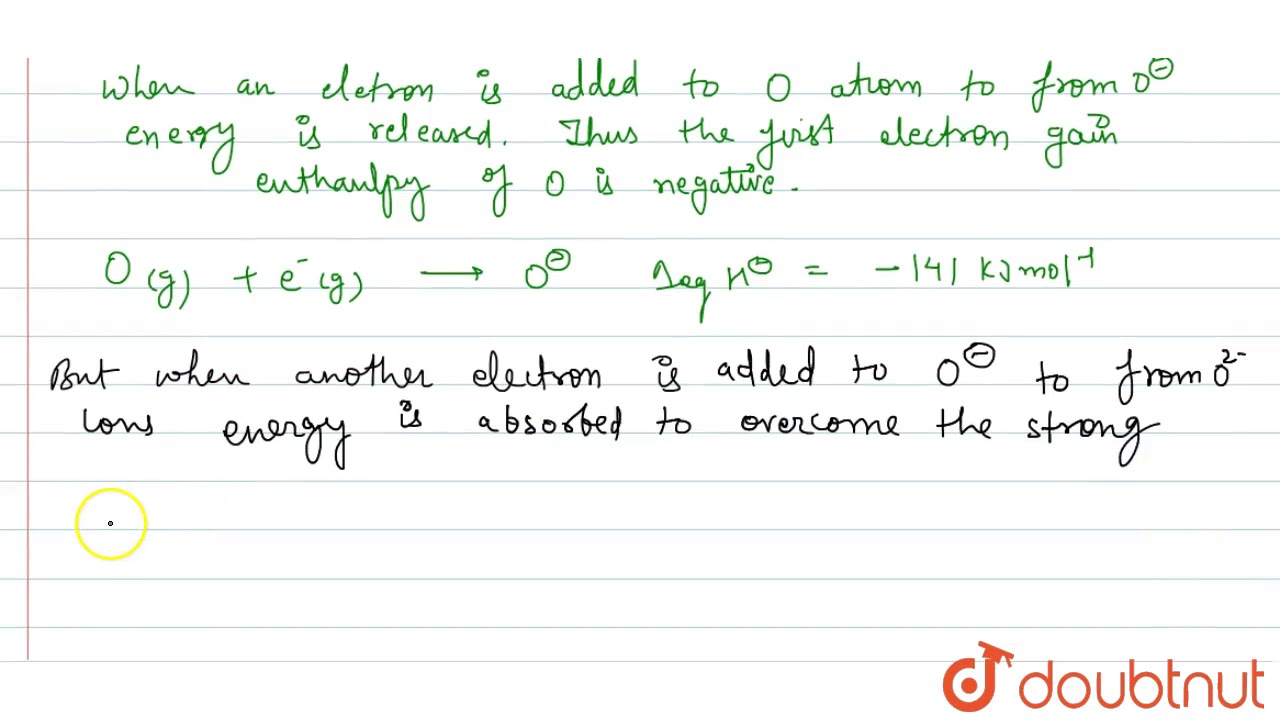 When an eletron is added to O atom to from O⊖
energy is released. Thus the first electron gain
enthaulpy of O is negative.
O(g) + e⁻(g) ⟶ O⊖ ΔegH⊖ = -141 KJmol⁻¹
But when another electron is added to O⊖ to from O²⁻
ions energy is absorbed to overcome the strong
doubtnut